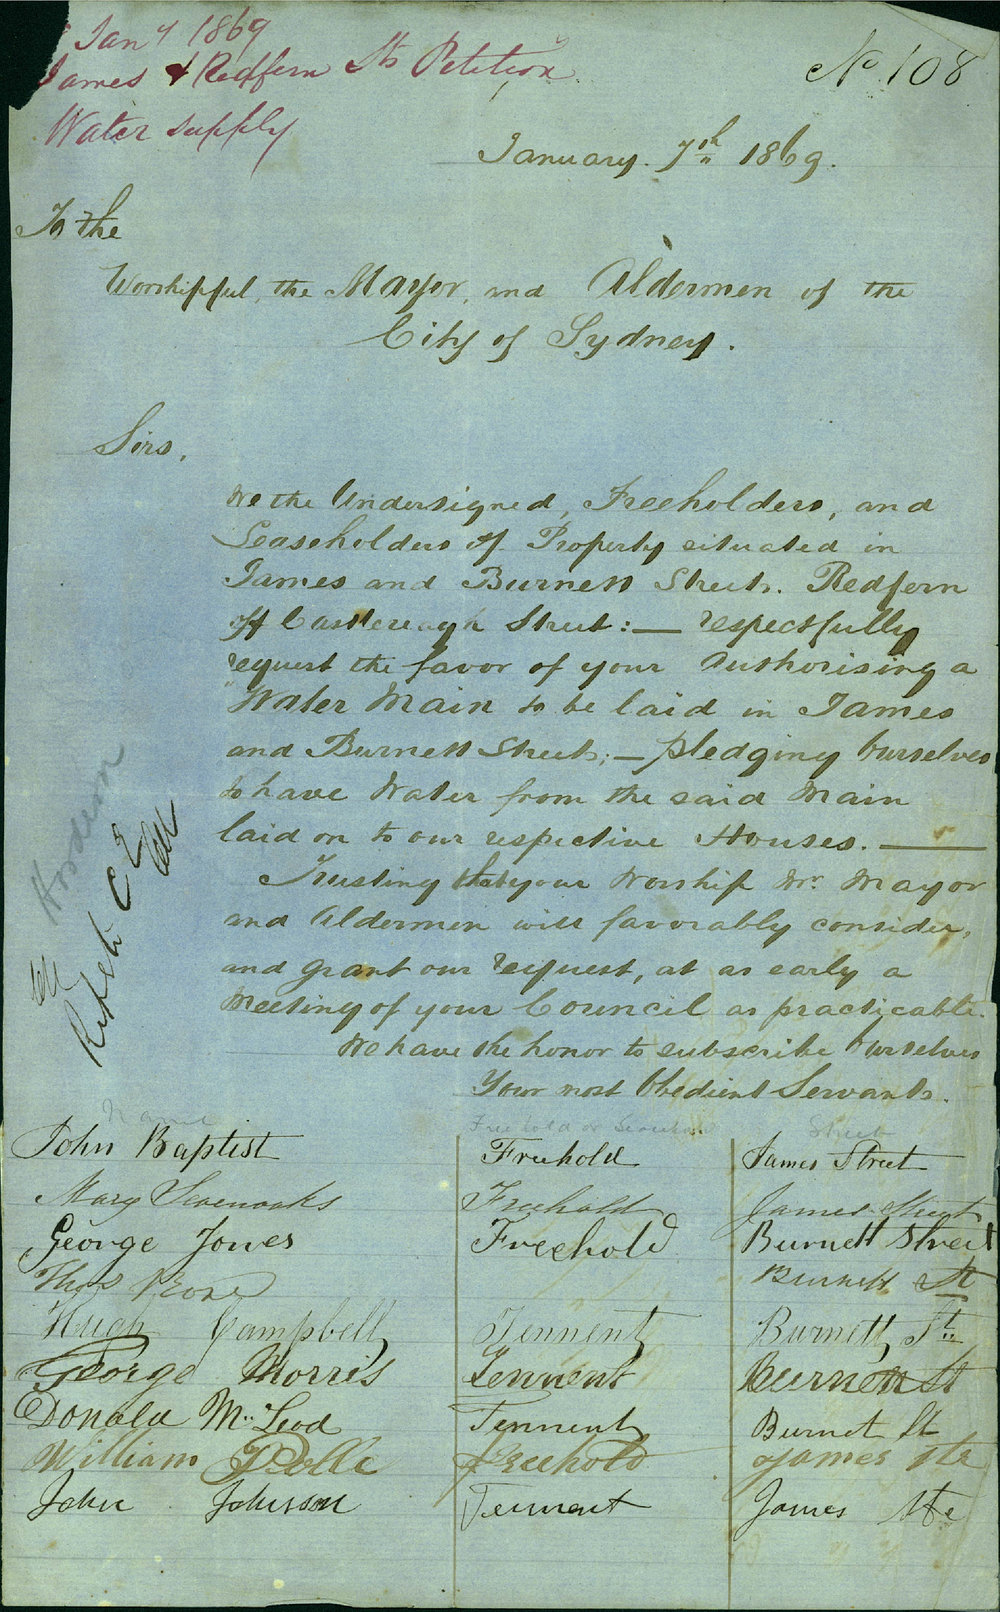 Jany 1869
James & Redfern Sts Petition
Water supply
No 108
January. 7th 1869.
To the
Worshipful, the Mayor, and Aldermen of the
City of Sydney.
Sirs,
We the Undersigned, Freeholders, and
Leaseholders of Property situated in
James and Burnett Streets. Redfern
off Castlereagh Street:— respectfully
request the favor of your Authorising a
Water Main to be laid in James
and Burnett Streets;— pledging Ourselves
to have Water from the said Main
laid on to our respective Houses.—
Trusting that your Worship Mr. Mayor
and Aldermen will favorably consider,
and grant our request, at as early a
Meeting of your Council as practicable.
We have the honor to subscribe Ourselves
Your most Obedient Servants.
Hordern
CE
Name Freehold or Leasehold Street
John Baptist Freehold James Street
Mary Freehold James Street
George Jones Freehold Burnett Street
Thos Burnett St
Hugh Campbell Tennent Burnett St.
George Morris Tennent Burnett St
Donald McLeod Tennent Burnet St
William Freehold James Ste
John Johnson Tennent James Ste